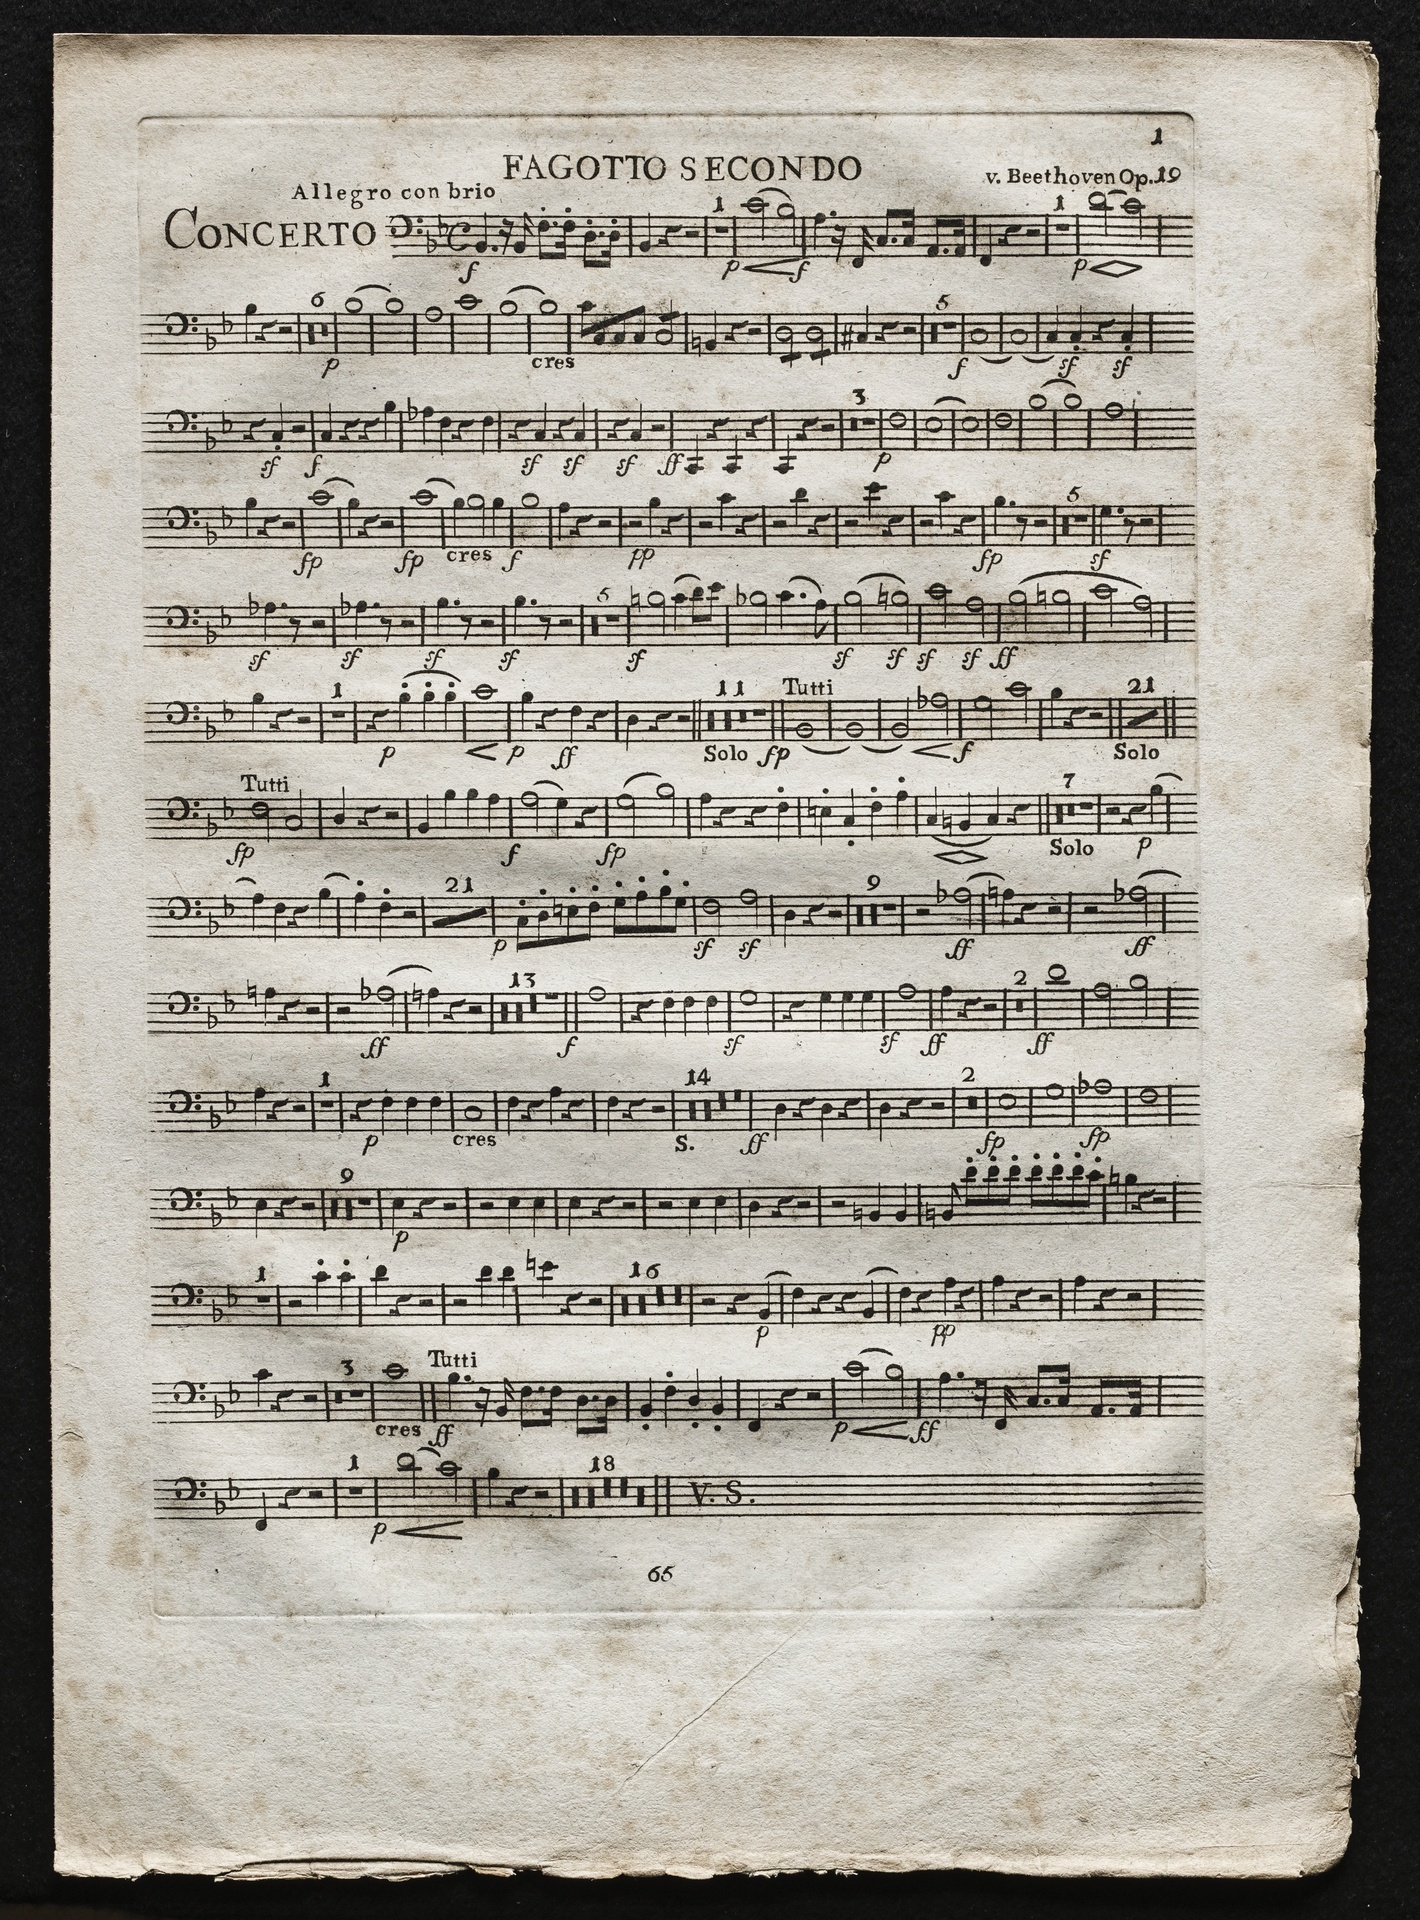 1
FAGOTTO SECONDO
Allegro con brio
v. Beethoven Op. 19
CONCERTO
1 1
f p f p
6 5
p cres f sf sf
3
sf f sf sf sf ff p
5
fp fp cres f pp fp sf
5
sf sf sf sf sf sf sf sf sf ff
1 11 Tutti 21
p p ff Solo fp f Solo
Tutti 7
fp f fp Solo p
21 9
p sf sf ff ff
13 2
ff f sf sf ff ff
1 14 2
p cres S. ff fp fp
9
p
1 16
p pp
3 Tutti
cres ff p ff
1 18
V. S.
p
65